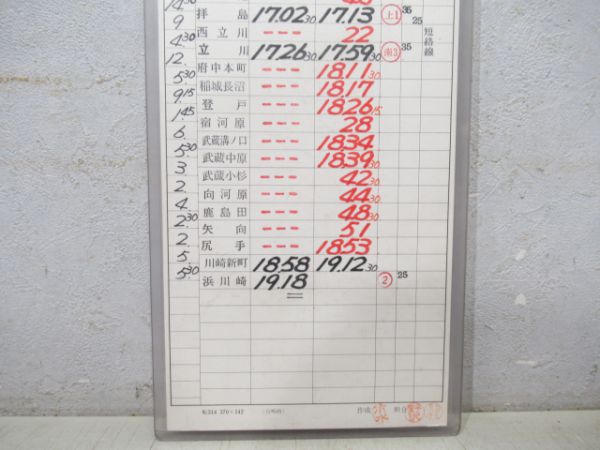 9 拝島 17.02 30 17.13 上1 35 25
4 30 西立川 --- 22 短絡線
12. 立川 17.26 30 17.59 30 南3 35
5 30 府中本町 --- 18.11 30
9 15 稲城長沼 --- 18.17
1 45 登戸 --- 18.26 15
6. 宿河原 --- 28
5 30 武蔵溝ノ口 --- 18.34
3. 武蔵中原 --- 18.39 30
2. 武蔵小杉 --- 42 30
4. 向河原 --- 44 30
2 30 鹿島田 --- 48 30
2. 矢向 --- 51
5. 尻手 --- 18.53
5 30 川崎新町 18.58 19.12 30
浜川崎 19.18 2 25
作成 照合